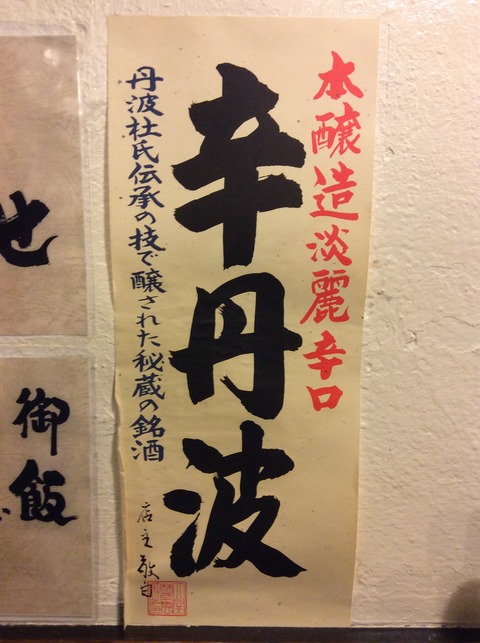 本醸造淡麗辛口
辛丹波
丹波杜氏伝承の技で醸された秘蔵の銘酒
店主敬白
せ
御飯